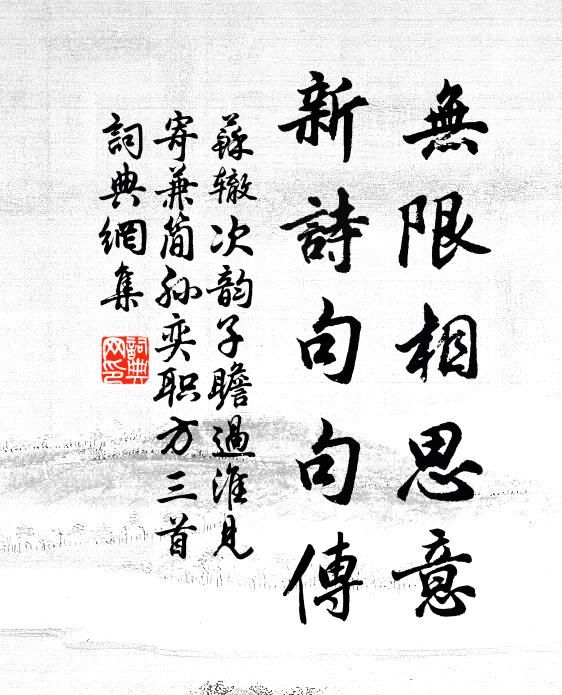 無限相思意
新詩句句傳
蘇辙次韵子瞻過淮見
寄兼简孙奕职方三首
詞典網集
詞典網印